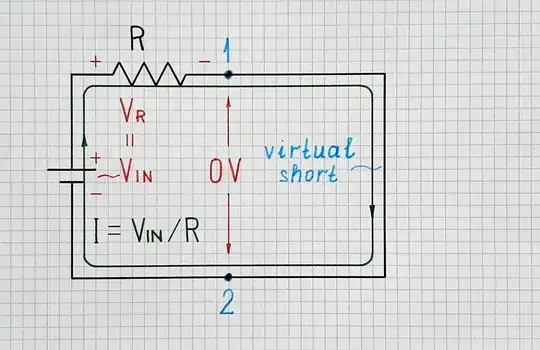 R
1
+ −
VR
=
VIN
+
−
0V
virtual
short
I = VIN/R
2